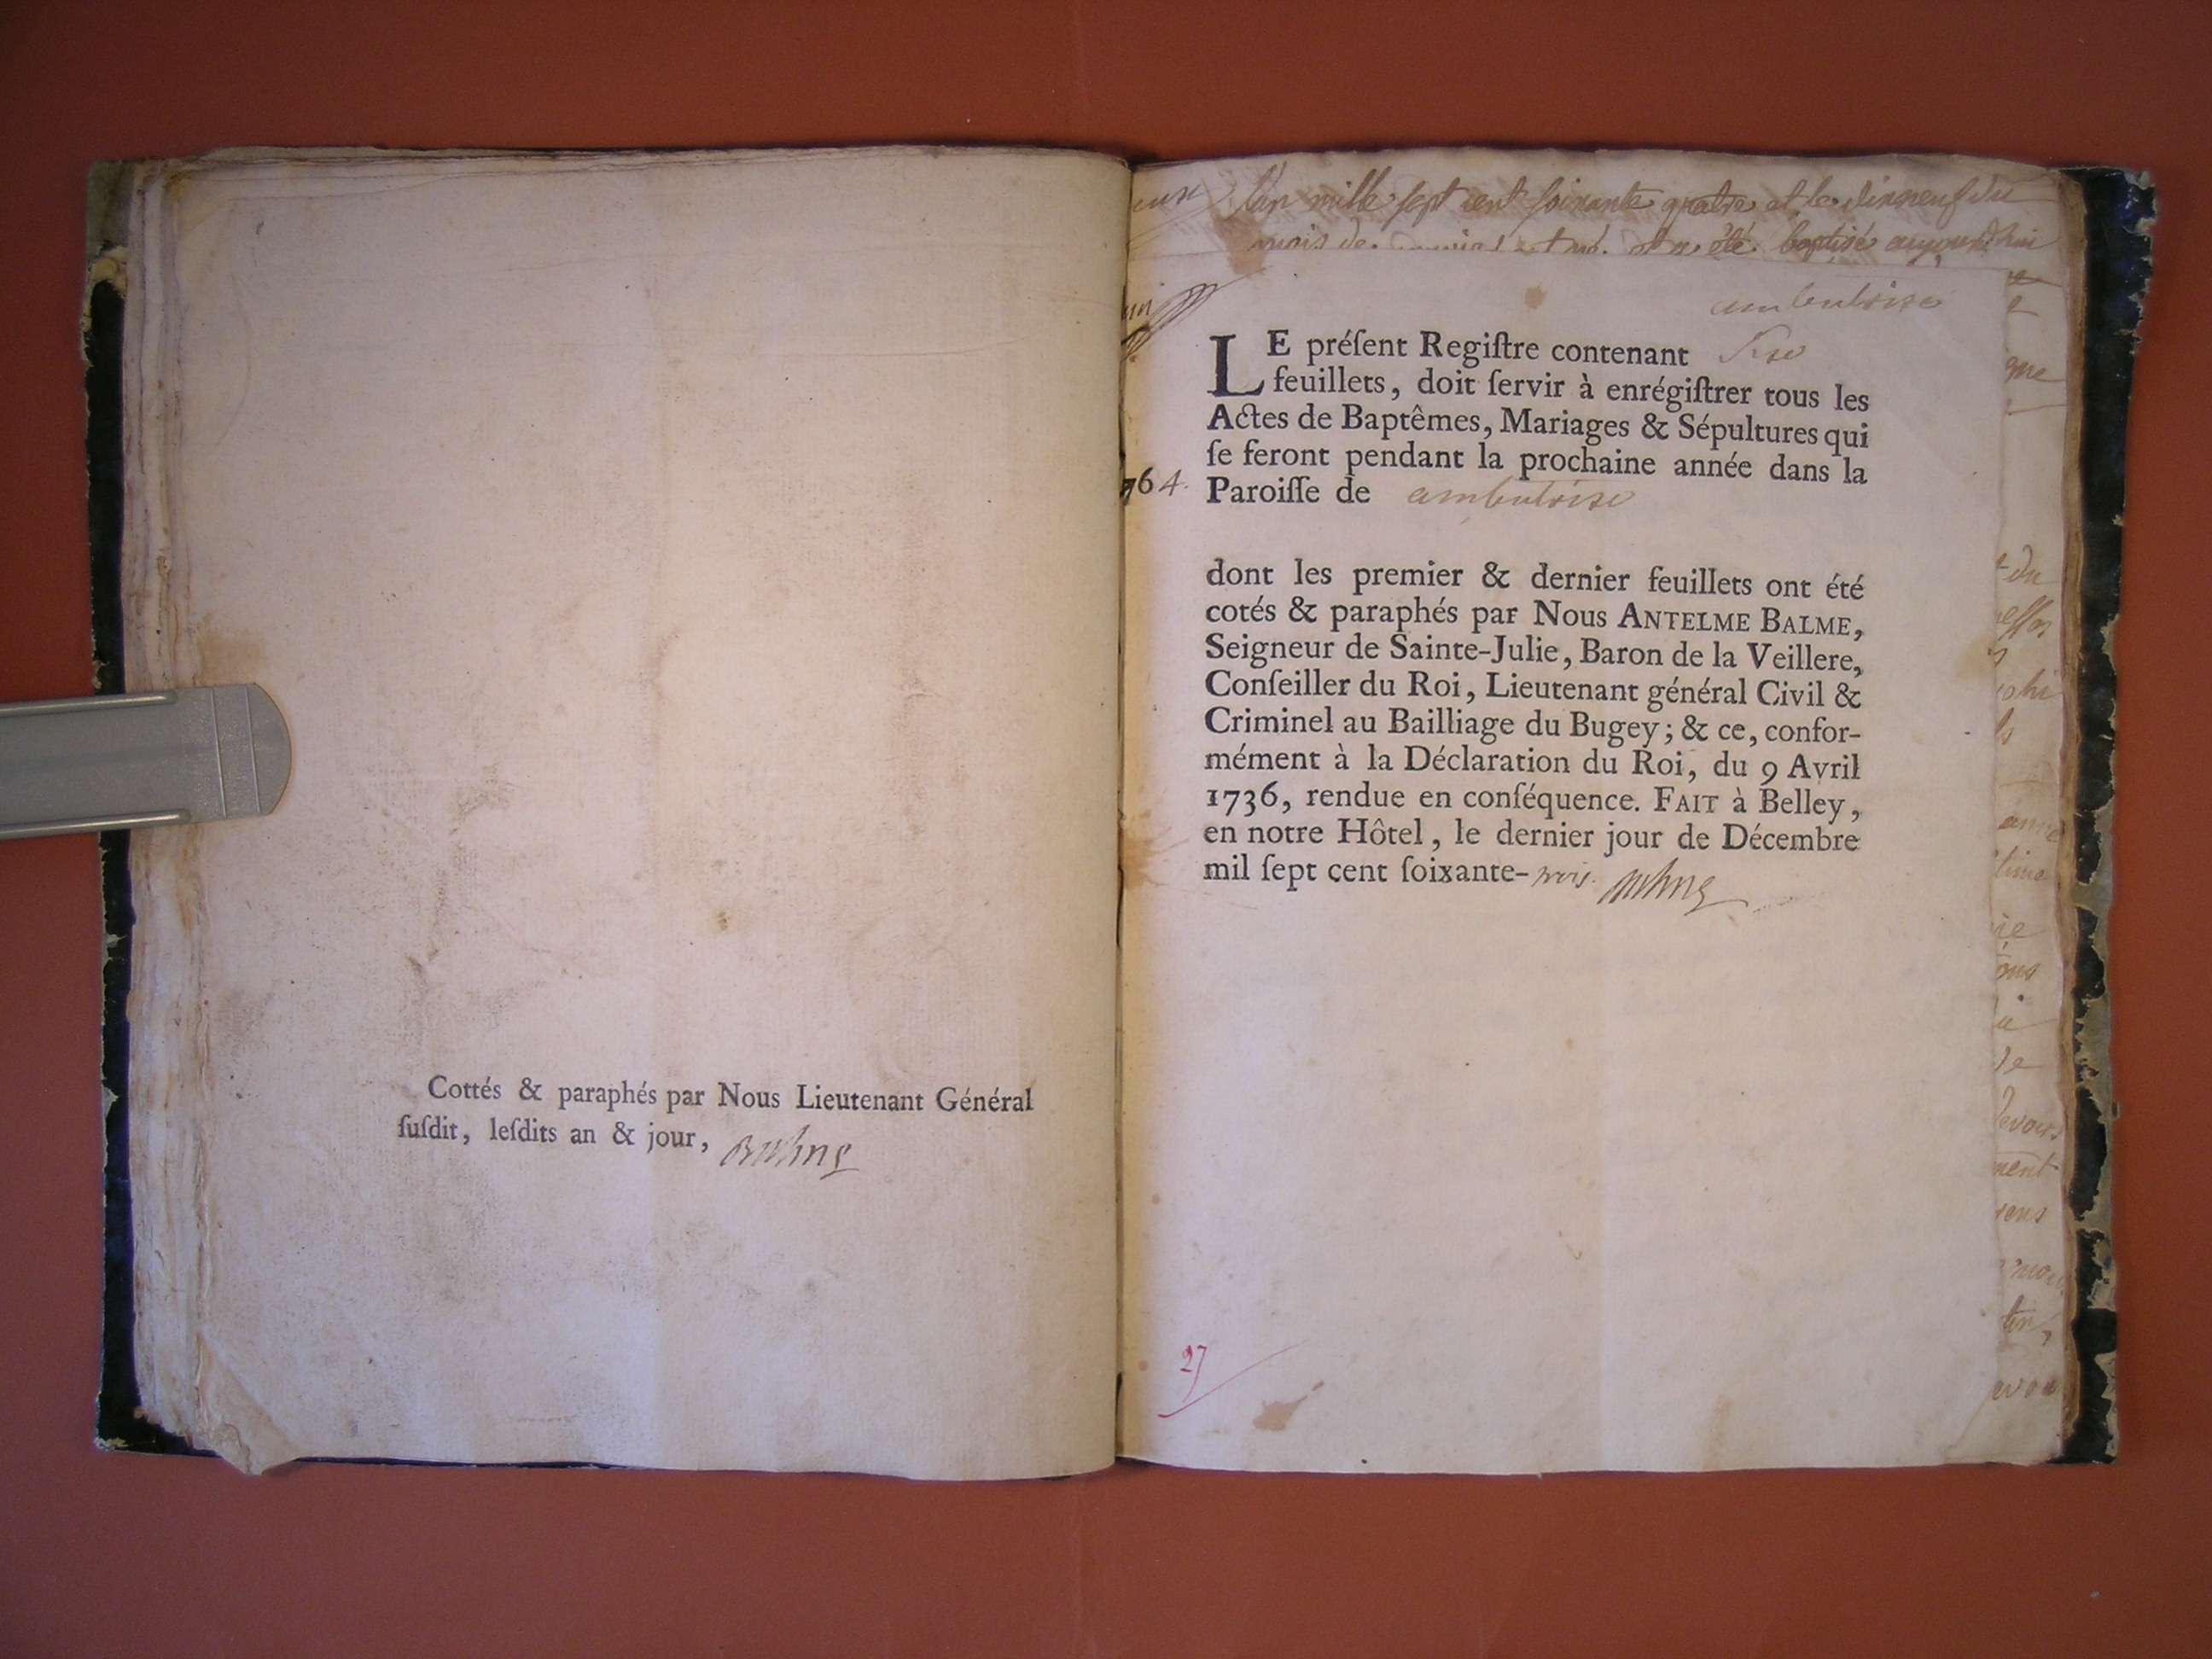 Cottés & paraphés par Nous Lieutenant Général
ſuſdit, leſdits an & jour, Balme
l'an mille sept cent soixante quatre et le dixneuf du
mois de et a été baptisé aujourd'hui
ambutrise
764.
LE préſent Regiſtre contenant
feuillets, doit ſervir à enrégiſtrer tous les
Actes de Baptêmes, Mariages & Sépultures qui
ſe feront pendant la prochaine année dans la
Paroiſſe de ambutrise
dont les premier & dernier feuillets ont été
cotés & paraphés par Nous ANTELME BALME,
Seigneur de Sainte-Julie, Baron de la Veillere,
Conſeiller du Roi, Lieutenant général Civil &
Criminel au Bailliage du Bugey; & ce, confor-
mément à la Déclaration du Roi, du 9 Avril
1736, rendue en conſéquence. FAIT à Belley,
en notre Hôtel, le dernier jour de Décembre
mil ſept cent ſoixante-trois. Balme
27